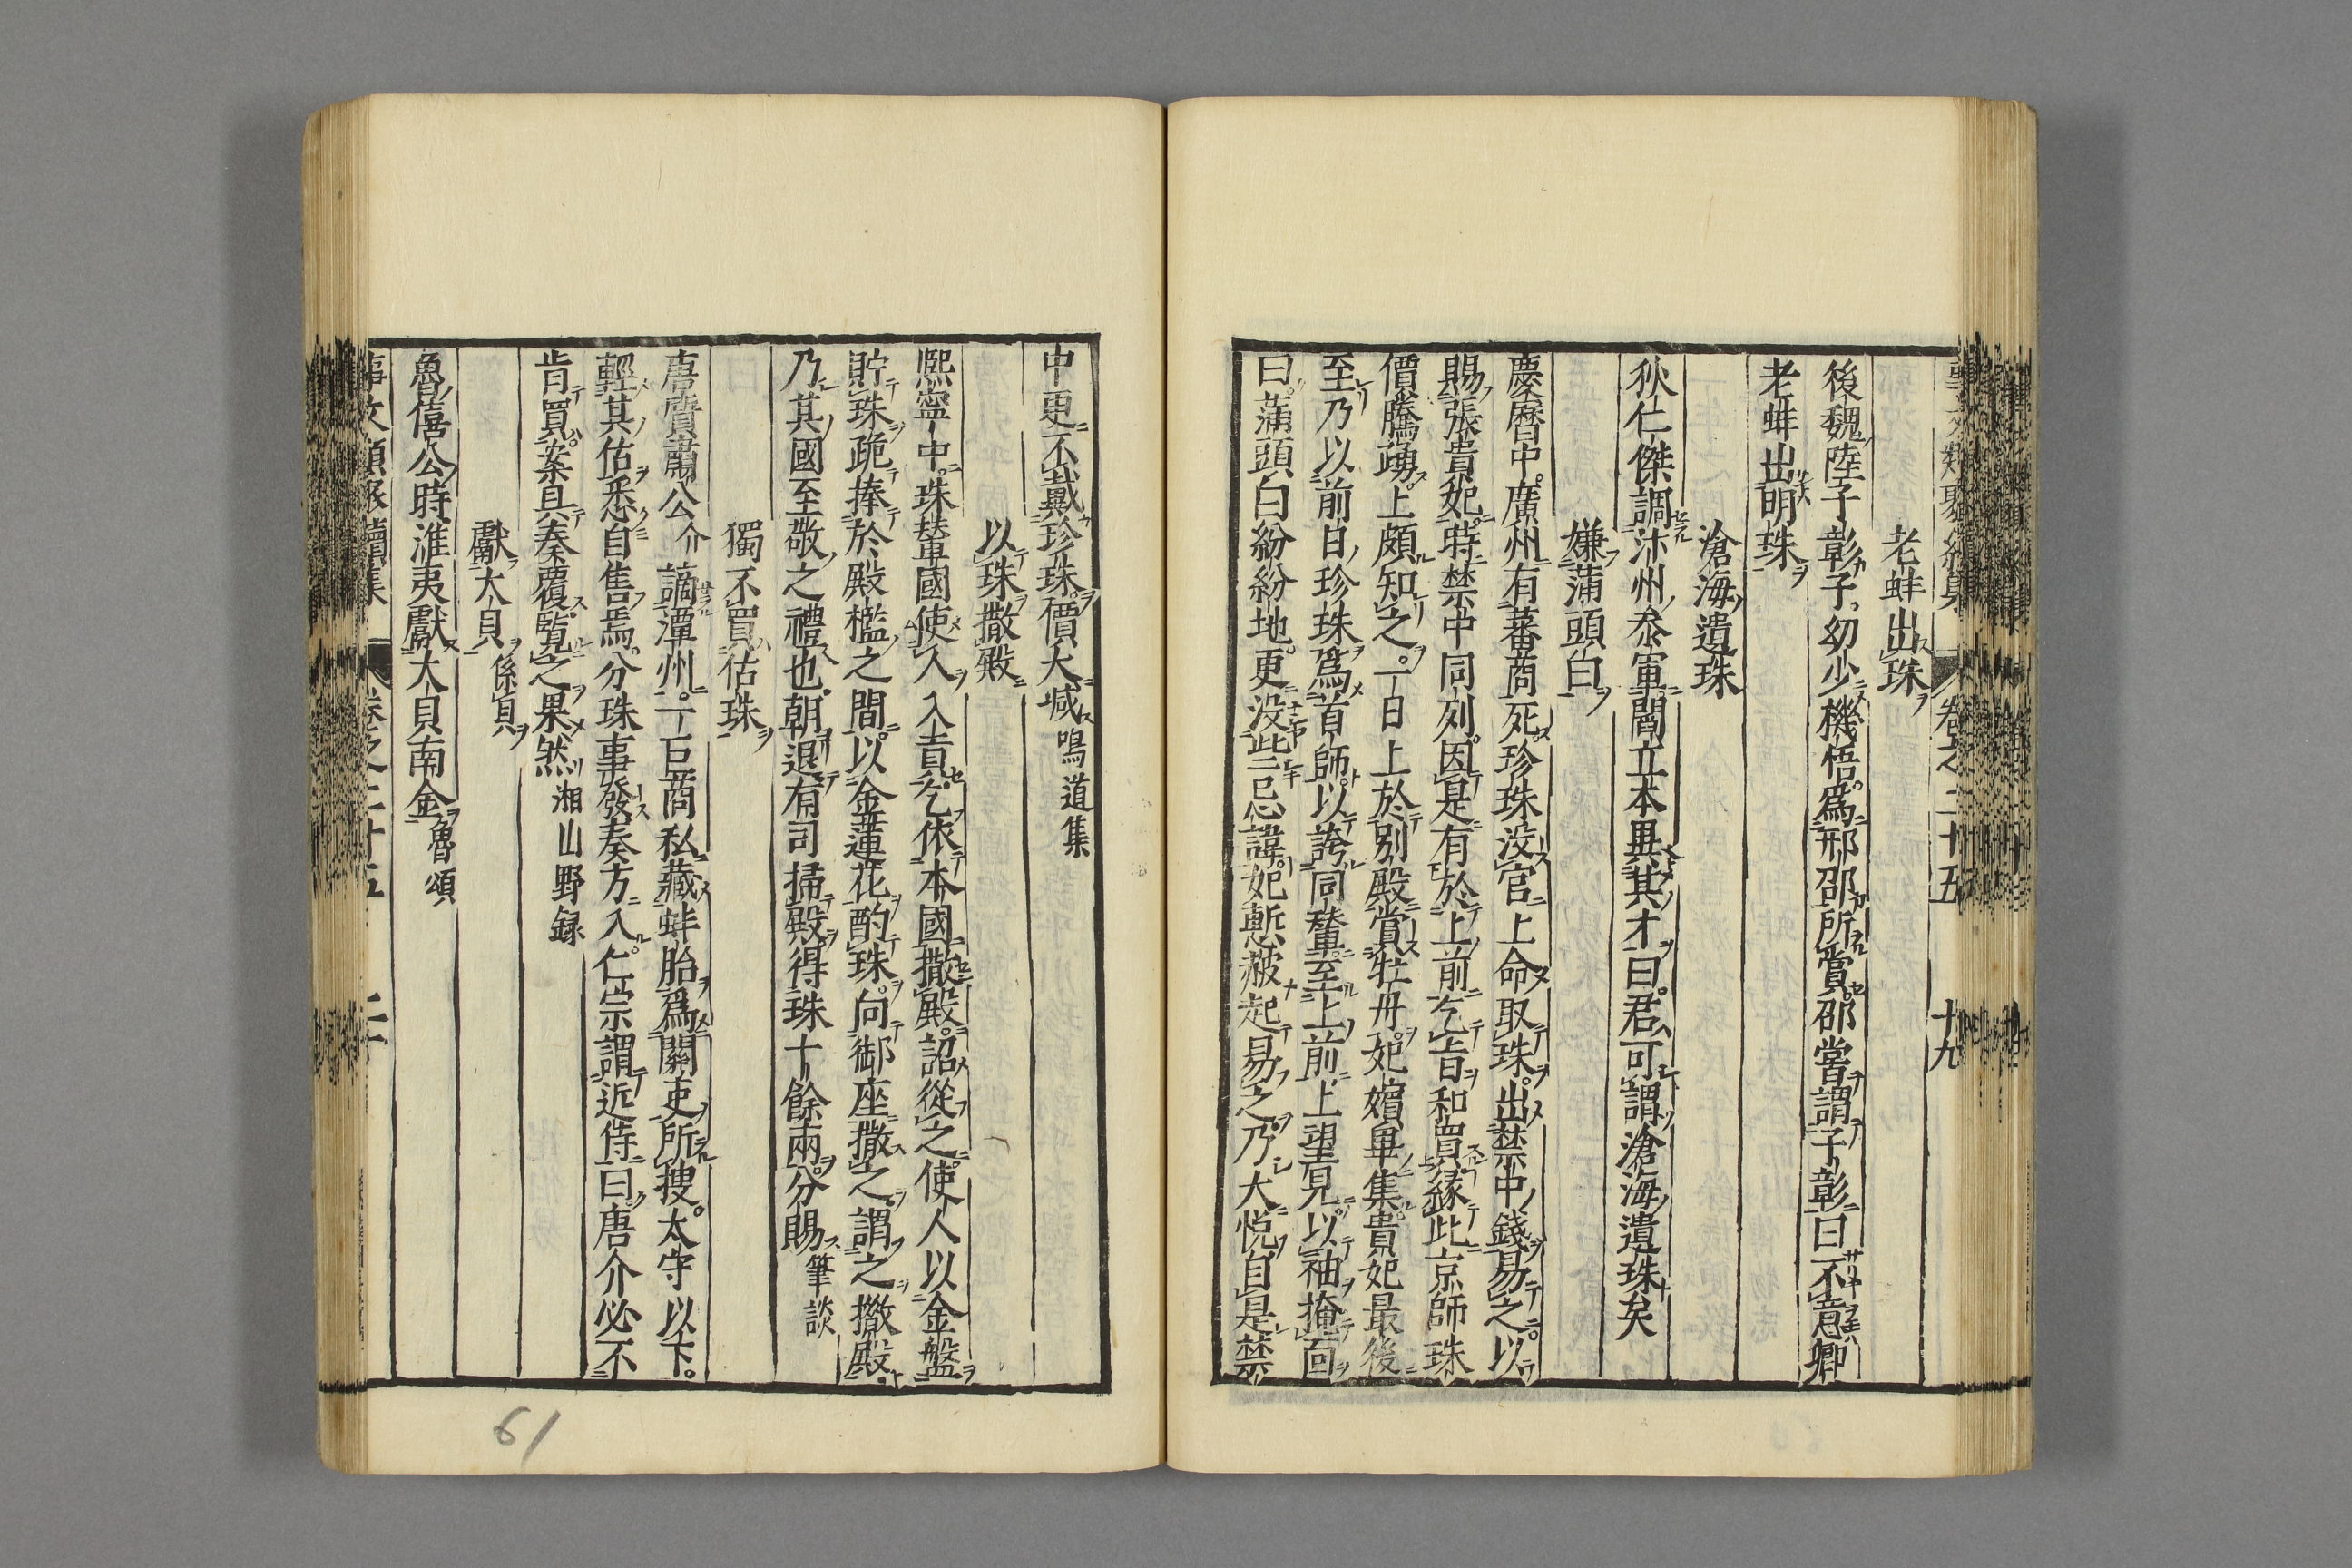 老蚌出珠
後魏陸子彰子幼少機悟爲邢邵所賞邵嘗謂子彰曰不意卿
老蚌出明珠
滄海遺珠
狄仁傑調汴州叅軍閻立本異其才曰君可謂滄海遺珠矣
嫌蒲頭白
慶曆中廣州有蕃商死珍珠没官上命取珠出禁中錢易之以
賜張貴妃時禁中同列因是有於上前乞旨和買緣此京師珠
價騰踴上頗知之一日上於別殿賞牡丹妃嬪畢集貴妃最後
至乃以前日珍珠爲首餙以誇同輦至上前上望見以袖掩面
曰蒲頭白紛紛地更没些忌諱妃慙赧起易之乃大悦自是禁
中更不戴珍珠價大減 鳴道集
以珠撒殿
熙寧中珠輦國使人入貢乞依本國撒殿詔從之使人以金盤
貯珠跪捧於殿檻之間以金蓮花酌珠向御座撒之謂之撒殿
乃其國至敬之禮也朝退有司掃殿得珠十餘兩分賜 筆談
獨不買估珠
唐質肅公介謫潭州一巨商私藏蚌胎爲關吏所搜太守以下
輕其估悉自售焉分珠事發奏方入仁宗謂近侍曰唐介必不
肯買案具奏覆覽之果然 湘山野録
獻大貝 係頁
魯僖公時淮夷獻大貝南金 魯頌
卷之二十五
十九